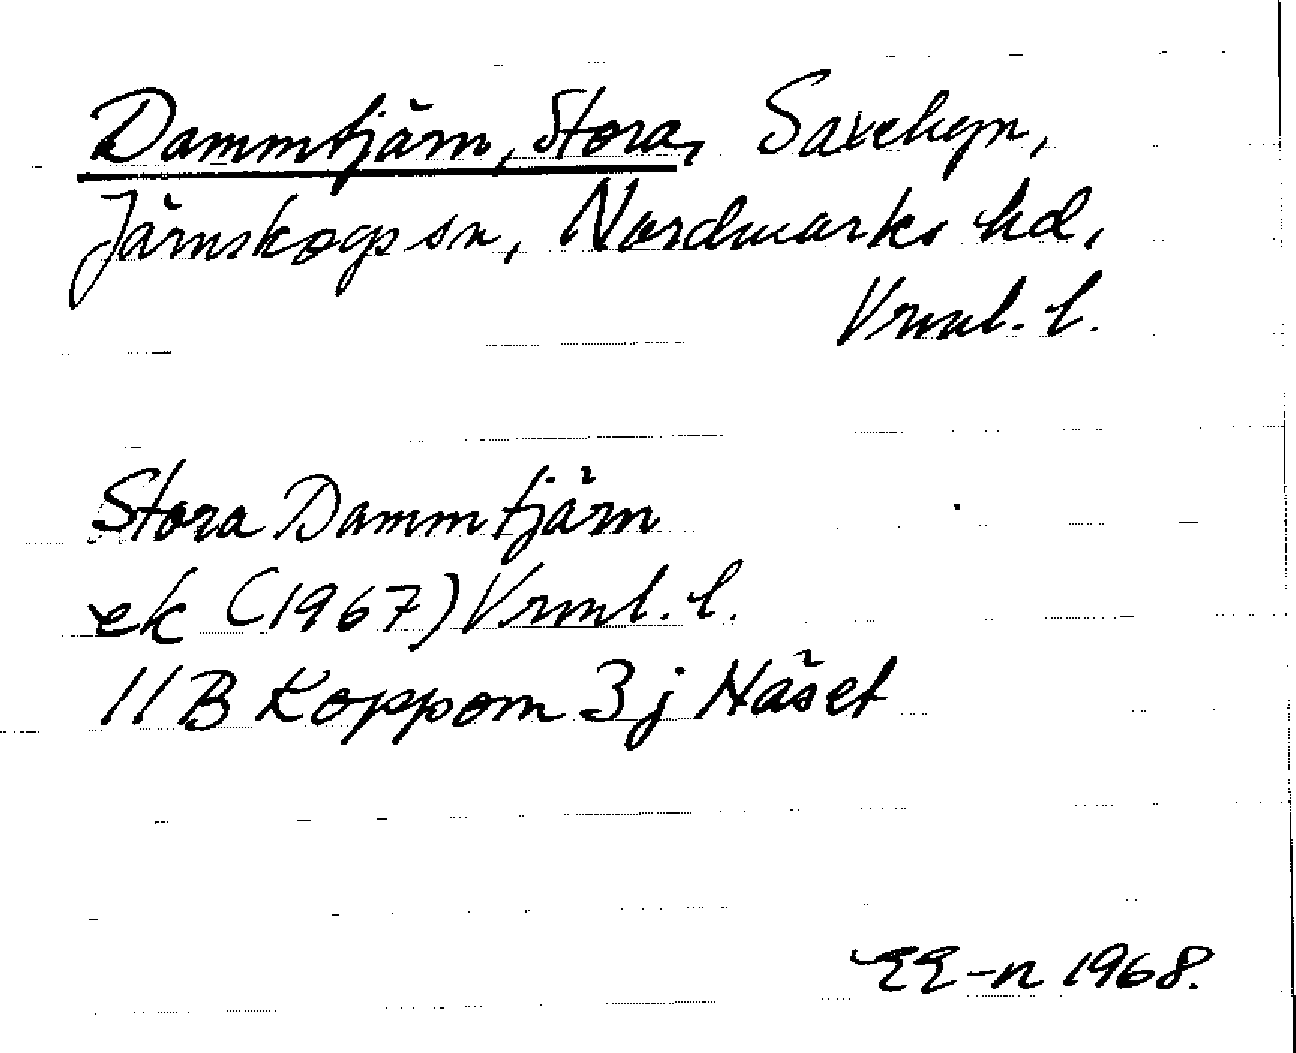 Dammtjärn, Stora, Saxebyn,
Järnskogs sn, Nordmarks hd,
Vrml. l.
Stora Dammtjärn
ek (1967) Vrml. l.
11B Koppom 3j Näset
EE-n 1968.